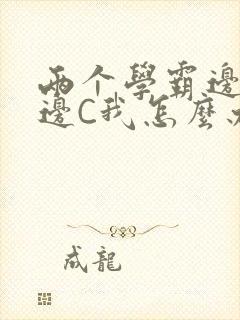 两个學霸邊
邊C我怎麼
成龍